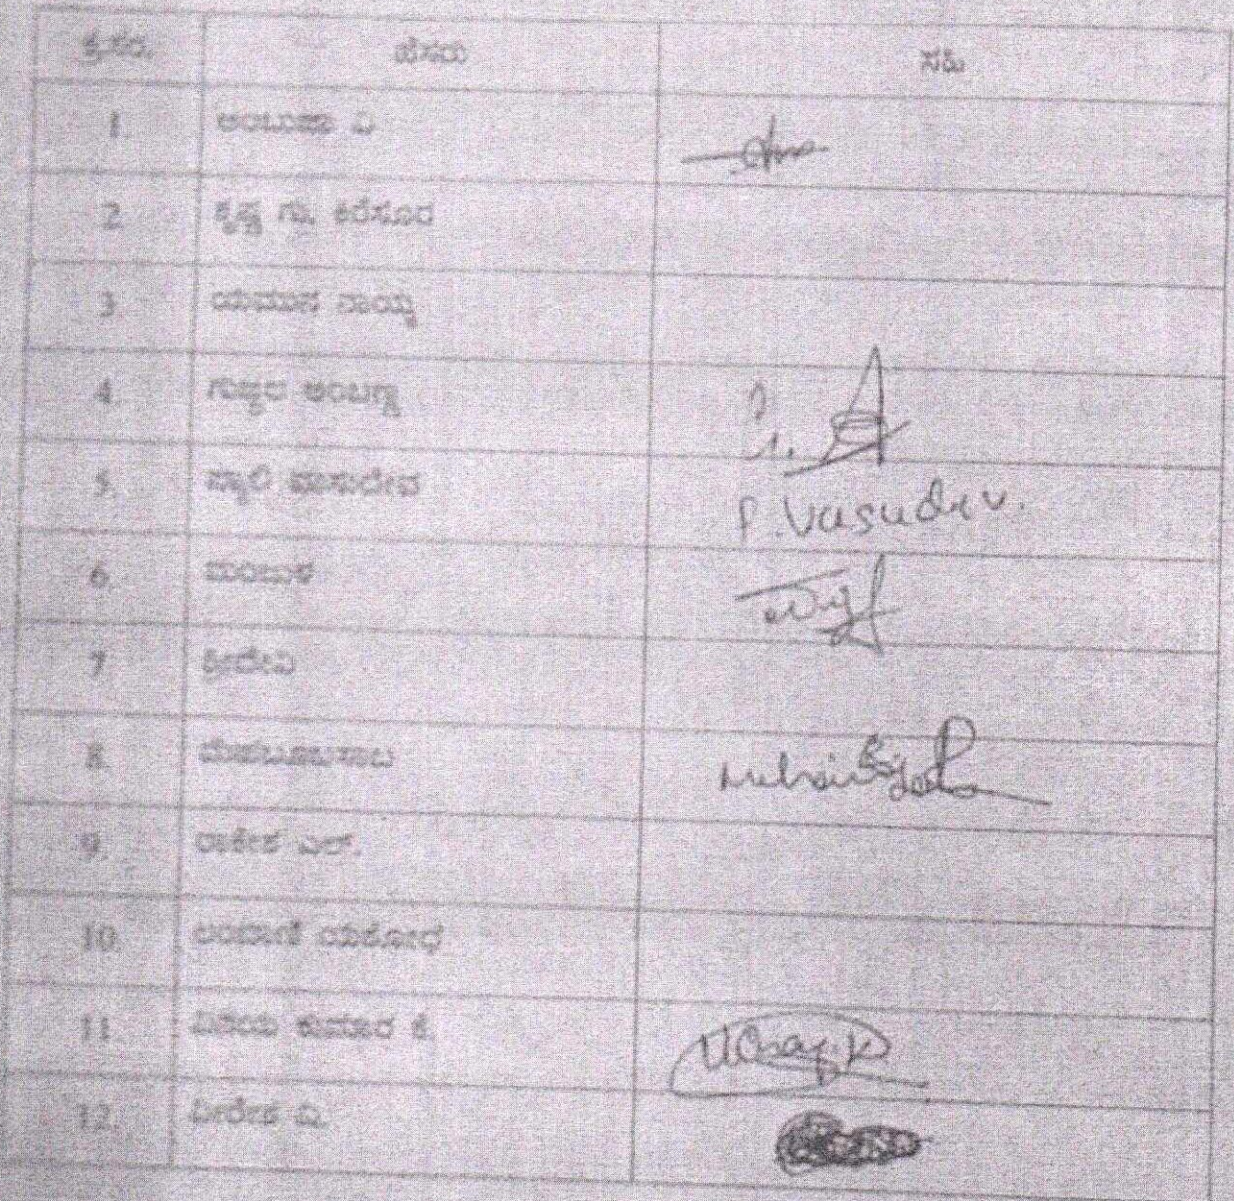 ಕ್ರ.ಸಂ. ಹೆಸರು ಸಹಿ
1. ಅಂಬುಜಾ ವಿ
2. ಕೃಷ್ಣ ಗು. ಕರೆಸೂರ
3. ಯಮುನ ನಾಯ್ಕ
4. ಗುಜ್ಜಲ ಅಂಬಣ್ಣ
5. ಪ್ಯಾಲಿ ವಾಸುದೇವ P. Vasudev.
6. ಮಂಜುಳ
7. ಶ್ರೀದೇವಿ
8. ಮೆಹಬೂಬಸಾಬ
9. ರಾಕೇಶ ಎಲ್.
10. ಲಂಬಾಣಿ ಯಶೋಧ
11. ವಿನಯ ಕುಮಾರ ಕೆ. Vinay.K
12. ವೀರೇಶ ವಿ.